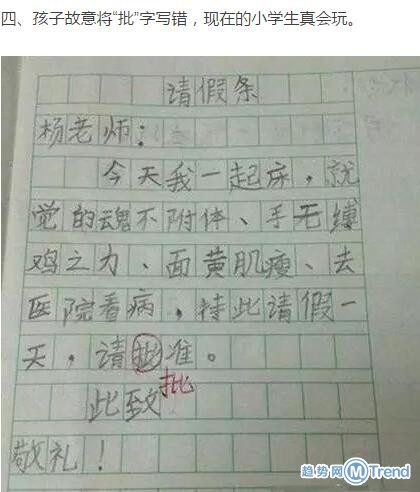 四、孩子故意将“批”字写错，现在的小学生真会玩。
请假条
杨老师：
今天我一起床，就
觉的魂不附体、手无缚
鸡之力、面黄肌瘦、去
医院看病，待此请假一
天，请批准。
批
此致
敬礼！
趋势网 MTrend